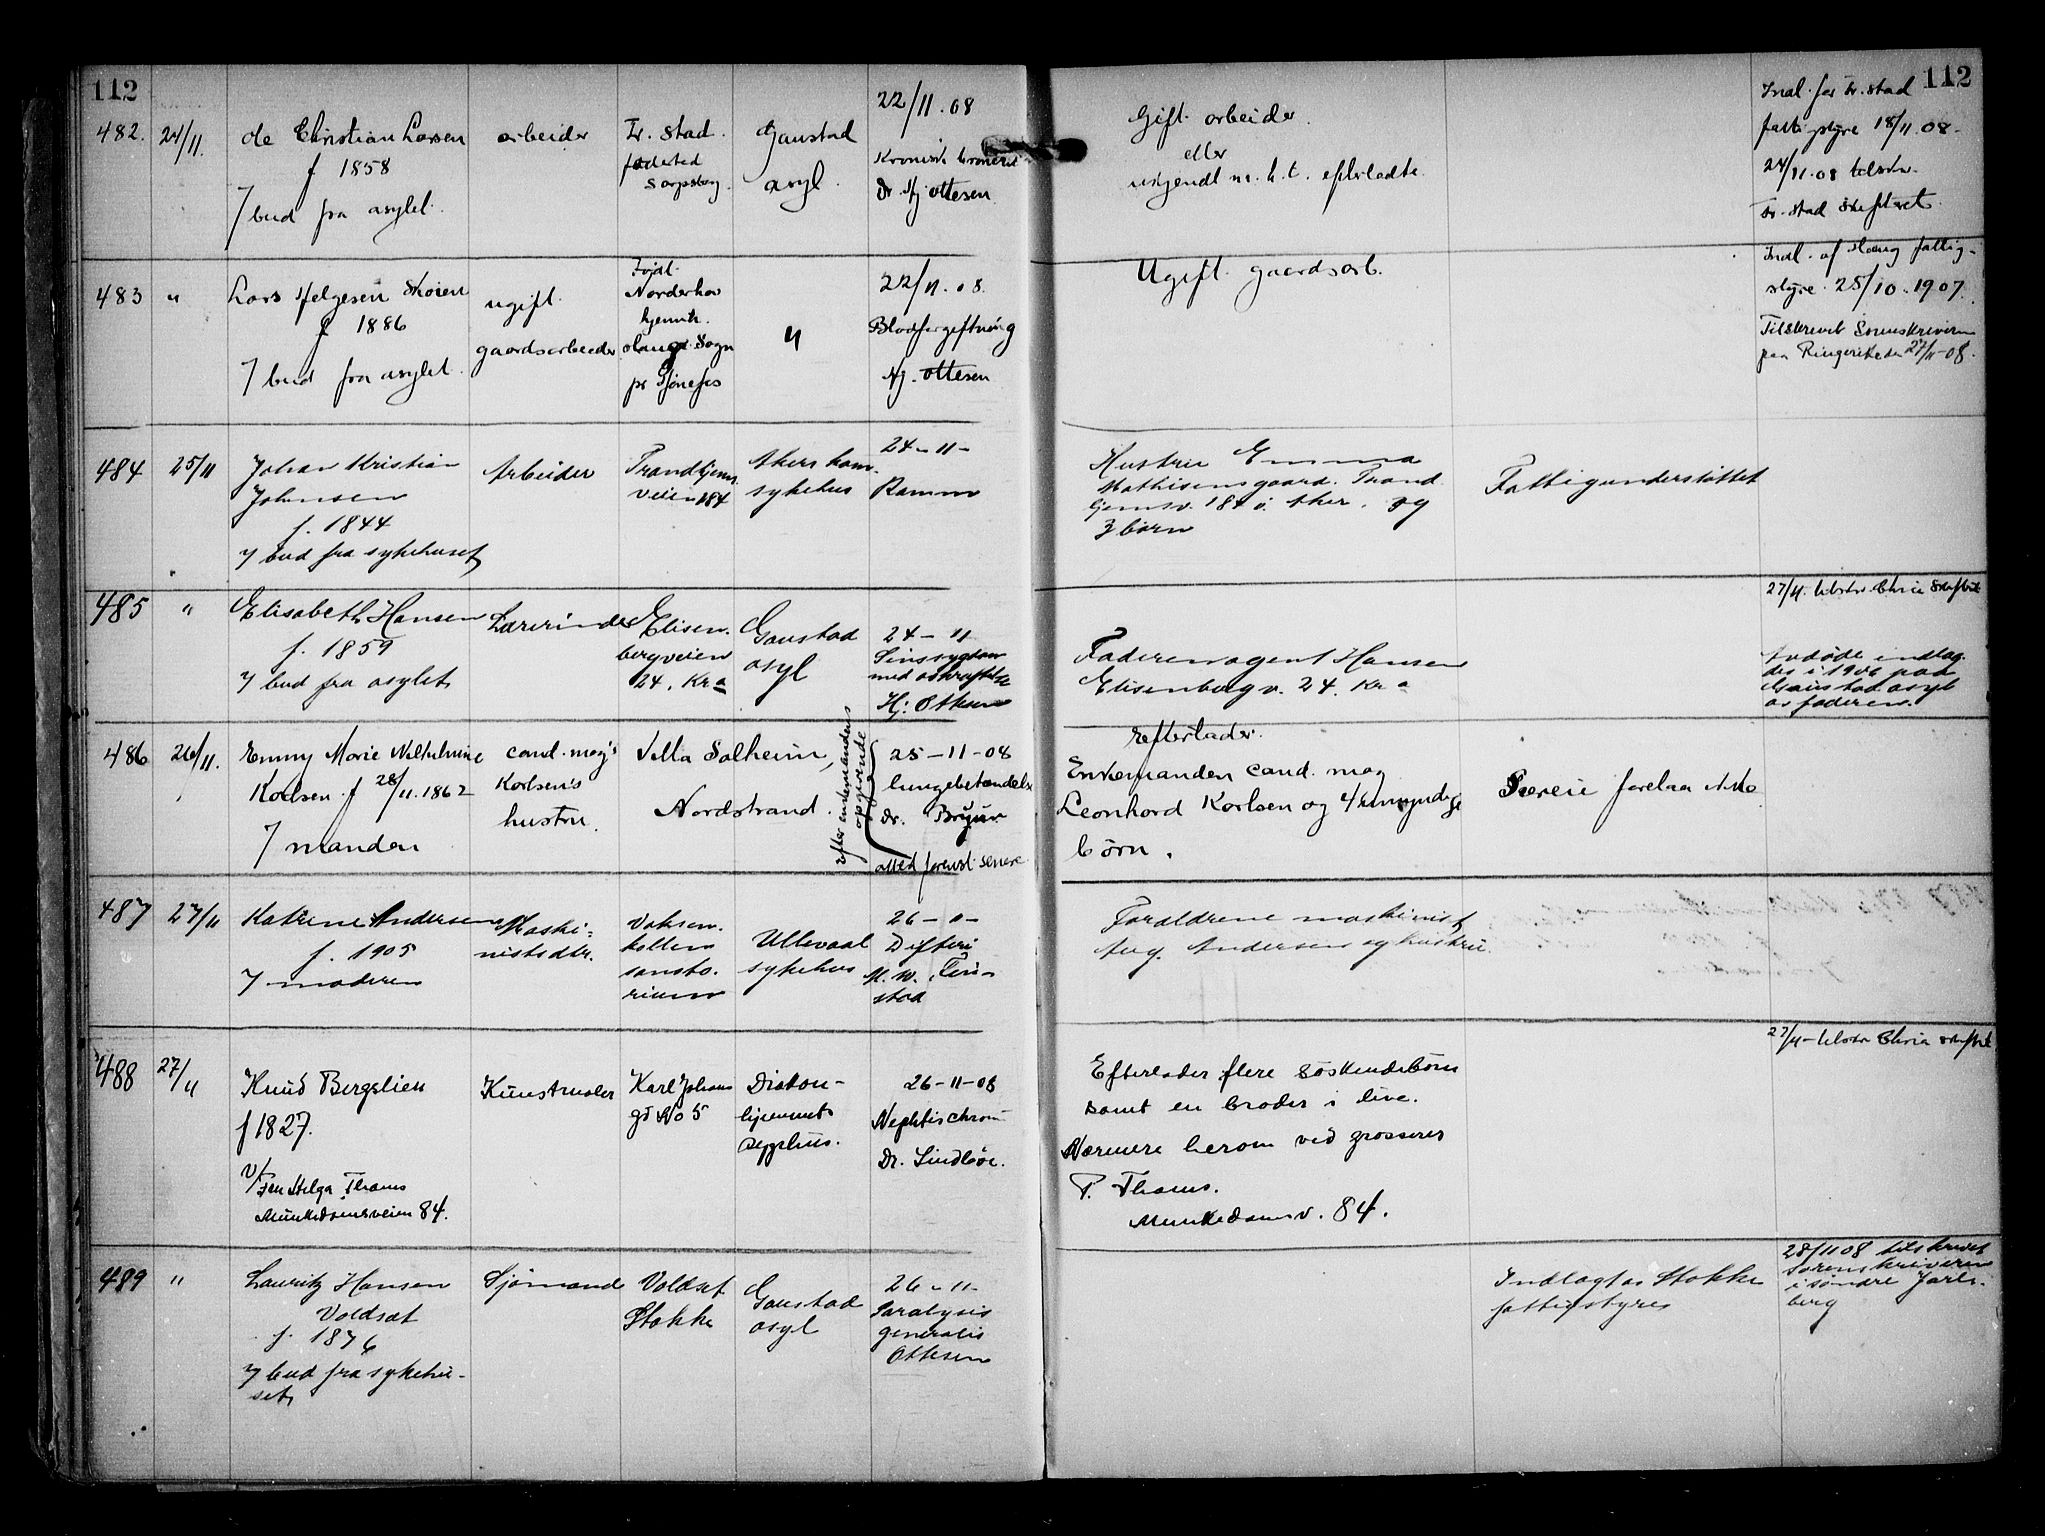 112
112
482. 24/11. Ole Christian Larsen
f 1858
7 bud fra asylet.
arbeider
Fr. stad.
fødested
Sarpsborg.
Gaustad
asyl.
22/11.08
Kronisk
Dr. Hj. Ottesen
Gift. arbeider.
eller
m. h. t. efterladte.
Indl. for Fr. stad
fattigstyre 18/11.08-
24/11.08 tilskr.
Fr. stad skifteret.
483 " Lars Helgesen Skoien
f 1886
7 bud fra asylet.
ugift.
gaardsarbeider
Født.
Norderhov
hjemh.
Sogn
pr Hønefos
"
22/11.08.
Blodforgiftning
Hj. Ottesen
Ugift. gaardsarb.
Indl. af Haug fattig-
styre. 25/10.1907.
Tilskrevet Sorenskriveren
paa Ringerike den 27/11-08.
484 25/11 Johan Kristian
Johnsen
f. 1844
7 bud fra sykehuset
Arbeider
Trondhjems
veien 184
Akers kom.
sykehus
24-11-
Ramm
Hustru Emma
Mathisensgaard. Trond
hjemsv. 184 i Aker. og
3 børn
Fattigunderstøttet
485 " Elisabeth Hansen
f. 1859
7 bud fra asylet
Lærerinde
Elisen.
bergveien
24. Kr a
Gaustad
asyl
24-11
Sinssygdom
med
Hj: Ottesen
Faderen agent Hansen
Elisenbergv. 24. Kr a
27/11. tilskr. Chria Skifteret
Avdøde indlag.
des i 1906 paa
Gaustad asyl
av faderen.
486 26/11. Emmy Marie Wilhelmine
Karlsen f 28/11.1862
7 manden
cand. mag's
Karlsen's
hustru.
Villa Solheim,
Nordstrand.
efter enkemandens
opgivende
25-11-08
lungebetændelse
dr. Bruun
attest forevist senere
Efterlader.
Enkemanden cand. mag
Leonhard Karlsen og 4 umyndige
børn.
Særeie forelaa ikke
487 27/11 Katrine Andersen
f. 1905
7 moderen
Maski=
nistdtr.
Voksen.
kollen
sanato.
rium
Ullevaal
sykehus
26-11-
Difteri
M. W.
stad
Forældrene maskinist
Aug. Andersen og hustru.
488 27/11 Knud Bergslien
f 1827.
v/
Fru Helga Thams
Munkedamsveien 84.
Kunstmaler
Karl Johans
gt No 5
Diakon-
hjemmets
sygehus.
26-11-08
Nephtis chron
Dr. Lindboe.
Efterlader flere søskendebørn
samt en broder i live.
Nærmere herom ved grosserer
P. Thams.
Munkedamsv. 84.
27/11- tilskr Chria skifteret
489 " Lauritz Hansen
Voldsat
f. 1876
7 bud fra sykehu-
set
Sjømand
Voldsat
Stokke
Gaustad
asyl
26-11-
Paralysis
generalis
Ottesen
Indlagt av Stokke
fattigstyre
28/11 08 tilskrevet
Sorenskriveren
i søndre Jarls-
berg